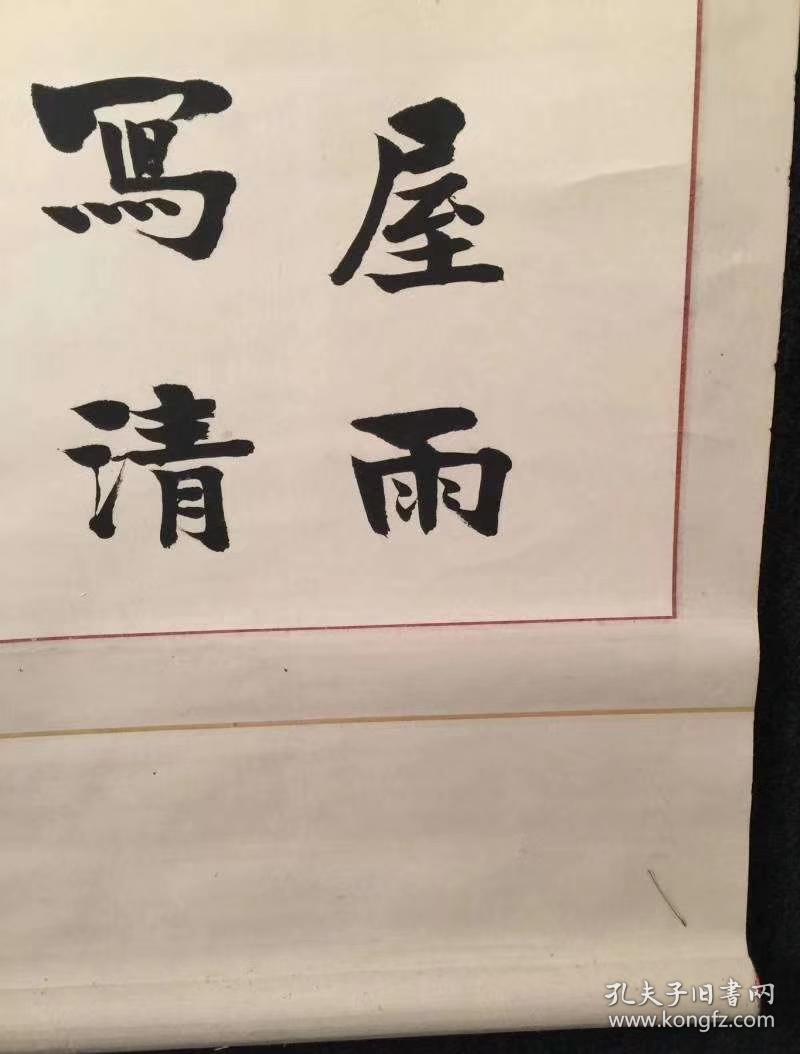 屋雨
寫清
孔夫子旧書网
www.kongfz.com